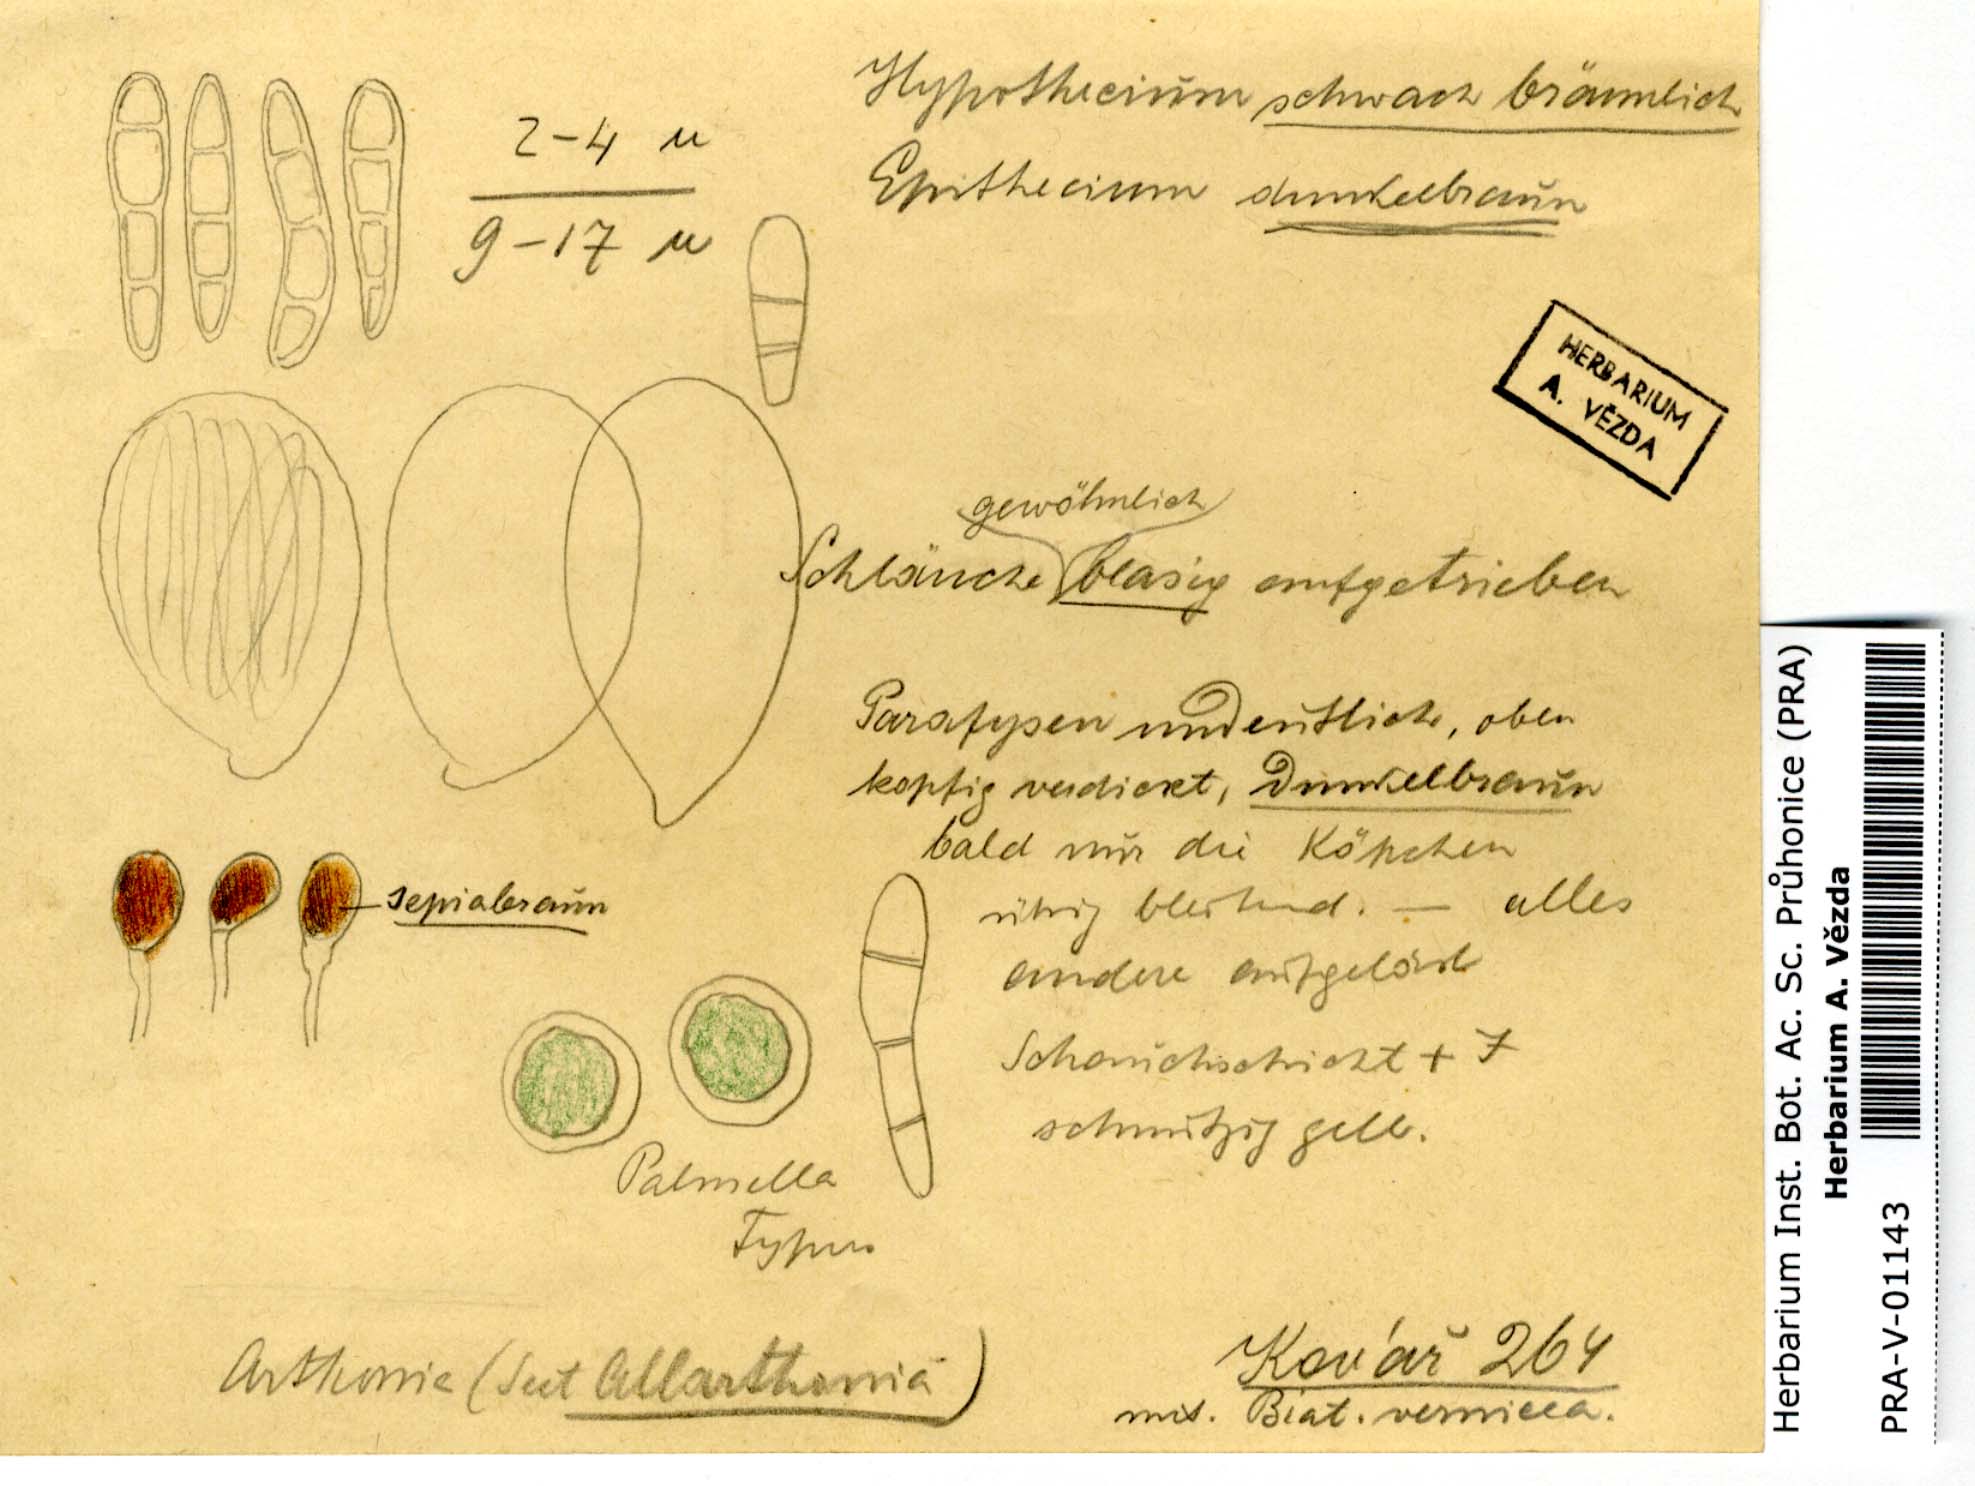 Hypothecium schwach bräunlich
Epithecium dunkelbraun
2-4 µ
9-17 µ
HERBARIUM
A. VĚZDA
gewöhnlich
Schläuche blasig aufgetrieben
Parafysen undeutlich, oben
kopfig verdickt, Dunkelbraun
bald nur die Köpchen
übrig bleibend. — alles
andere aufgelöst
sepiabraun
Schlauchschicht + J
schmützig gelb.
Palmella
Typus
Arthonia (Sect Allarthonia)
Kovář 264
mit. Biat. vernicea.
Herbarium Inst. Bot. Ac. Sc. Průhonice (PRA)
Herbarium A. Vězda
PRA-V-01143